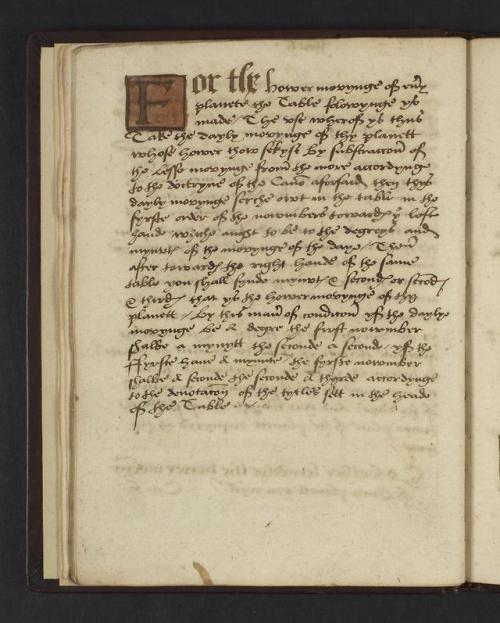 For the hower movynge of eny
planete the Table folowynge ys
made The vse wherof ys thus
Take the dayly movynge of thy planett
whose hower thow sekyst by substraccon of
the lesse movynge from the more accordynge
to the doctryne of the Cano aforsaid then thys
dayly movynge serche owt in the table in the
fyrste order of the nowmbers towardς yͤ left
hande whyche ought to be to the degreys and
mynutς of the movynge of the daye / Then
after towardς the right hande of the same
table you shall fynde mynut & secondς or secod
& thirdς that ys the hower movynge of thy
planett / by this man of condicon yf the dayly
movynge be & degre the first nowmber
shalbe a mynytt the seconde a second / yf the
fyrste have & mynute the fyrste nowmber
shalbe & seconde the seconde & thyrde accordynge
to the denotacon of the tytles sett in the heade
of the Table